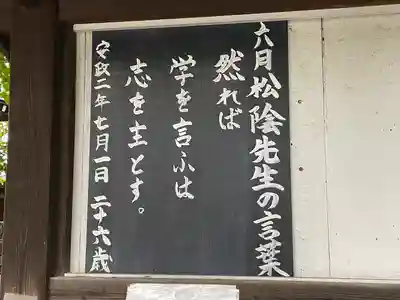 六月松陰先生の言葉
然れば
学を言ふは
志を主とす。
安政二年七月一日 二十六歳